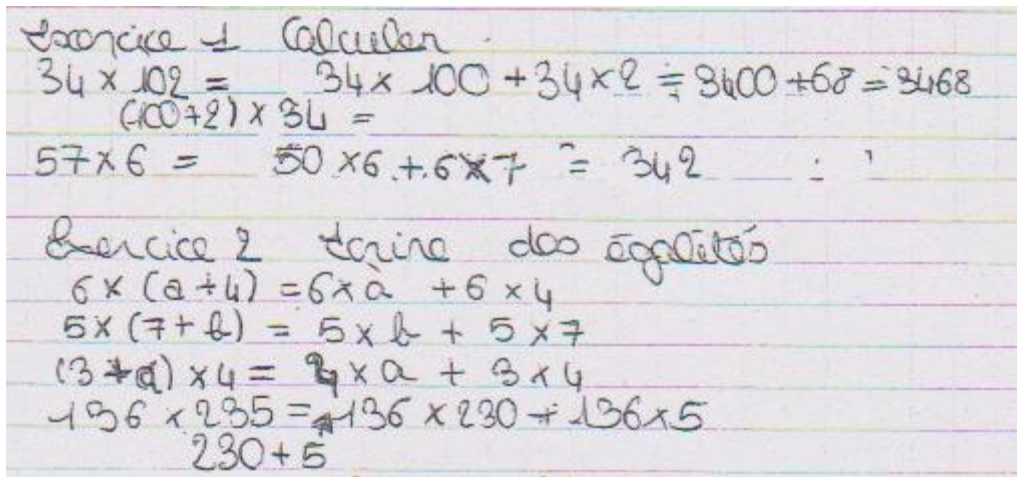 Exercice 1 Calculer
34 × 102 = 34 × 100 + 34 × 2 = 3400 + 68 = 3468
(100+2) × 34 =
57 × 6 = 50 × 6 + 6 × 7 = 342
Exercice 2 Ecrire des égalités
6 × (a + 4) = 6 × a + 6 × 4
5 × (7 + b) = 5 × b + 5 × 7
(3 + a) × 4 = 4 × a + 3 × 4
136 × 235 = 136 × 230 + 136 × 5
230 + 5